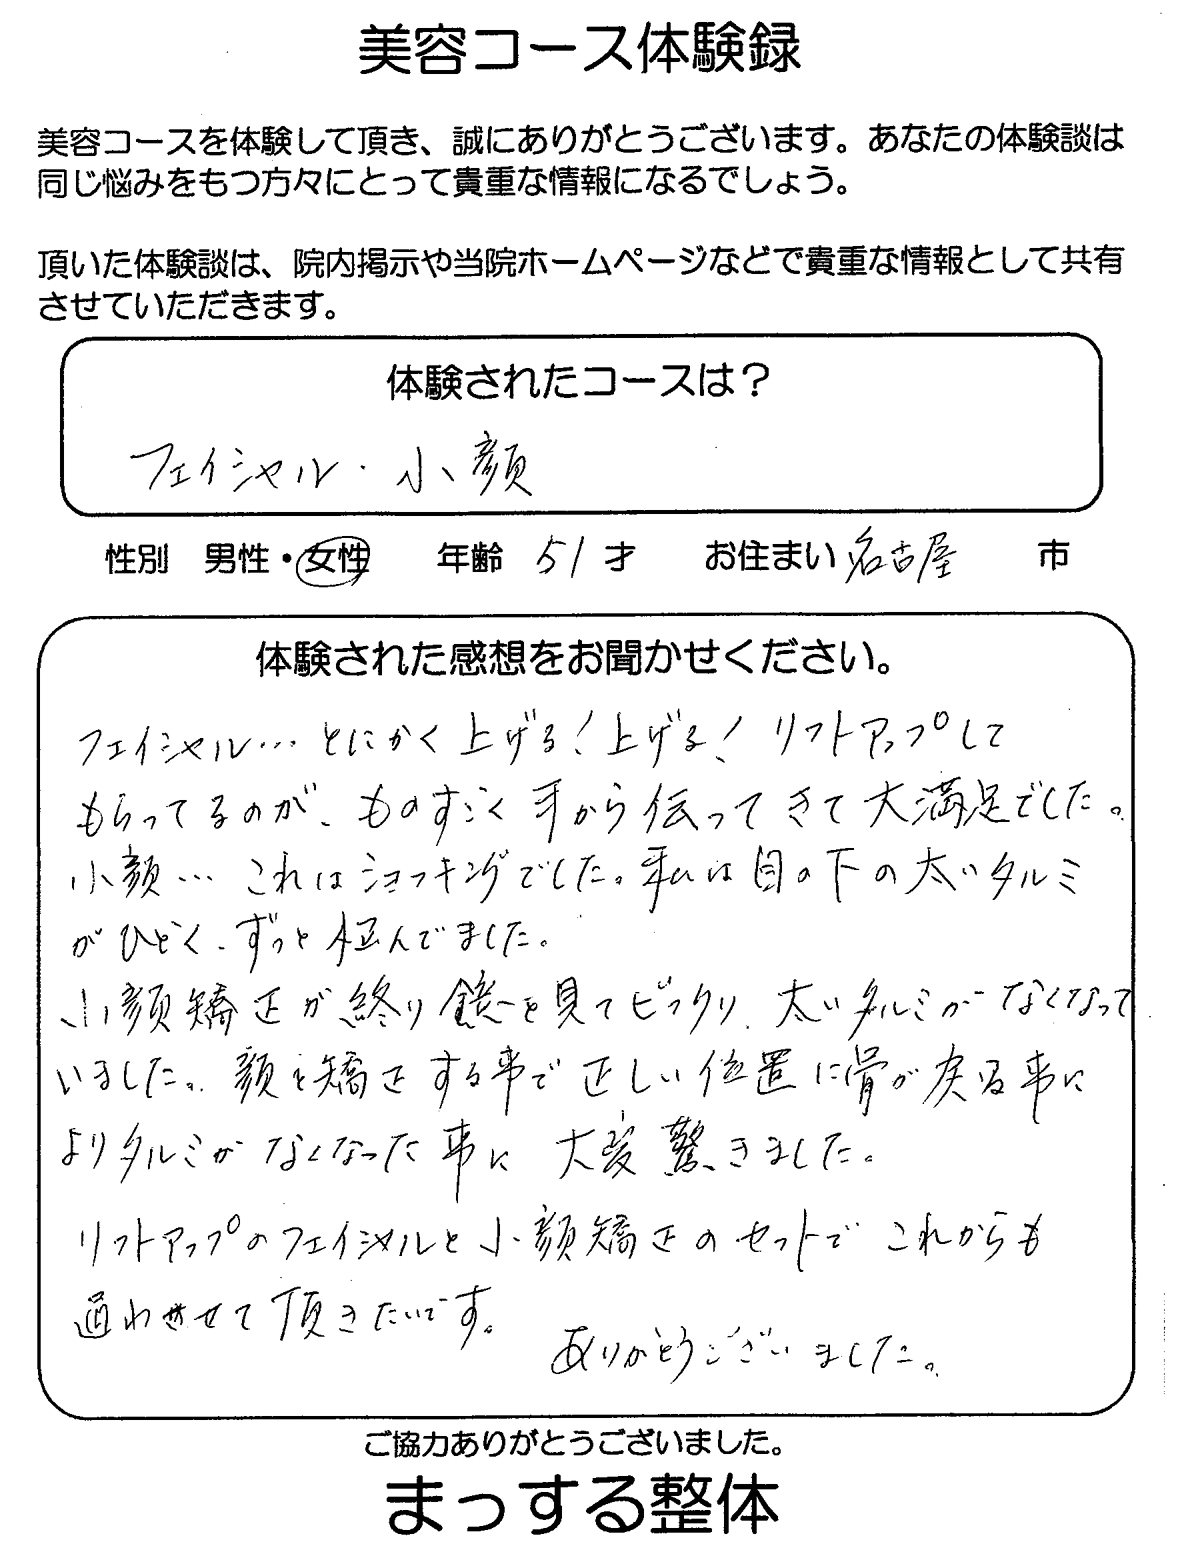 美容コース体験録
美容コースを体験して頂き、誠にありがとうございます。あなたの体験談は
同じ悩みをもつ方々にとって貴重な情報になるでしょう。
頂いた体験談は、院内掲示や当院ホームページなどで貴重な情報として共有
させていただきます。
体験されたコースは？
フェイシャル・小顔
性別 男性・女性 年齢 51 才 お住まい 名古屋 市
体験された感想をお聞かせください。
フェイシャル…とにかく上げる！上げる！リフトアップして
もらってるのが、ものすごく手から伝ってきて大満足でした。
小顔…これはショッキングでした。私は目の下の太いタルミ
がひどく、ずっと悩んでました。
小顔矯正が終り鏡を見てビックリ、太いタルミがなくなって
いました。顔を矯正する事で正しい位置に骨が戻る事に
よりタルミがなくなった事に大変驚きました。
リフトアップのフェイシャルと小顔矯正のセットでこれからも
通わせて頂きたいです。
ありがとうございました。
ご協力ありがとうございました。
まっする整体